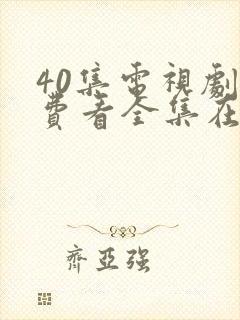 40集電視劇
費看全集在
齊亞强